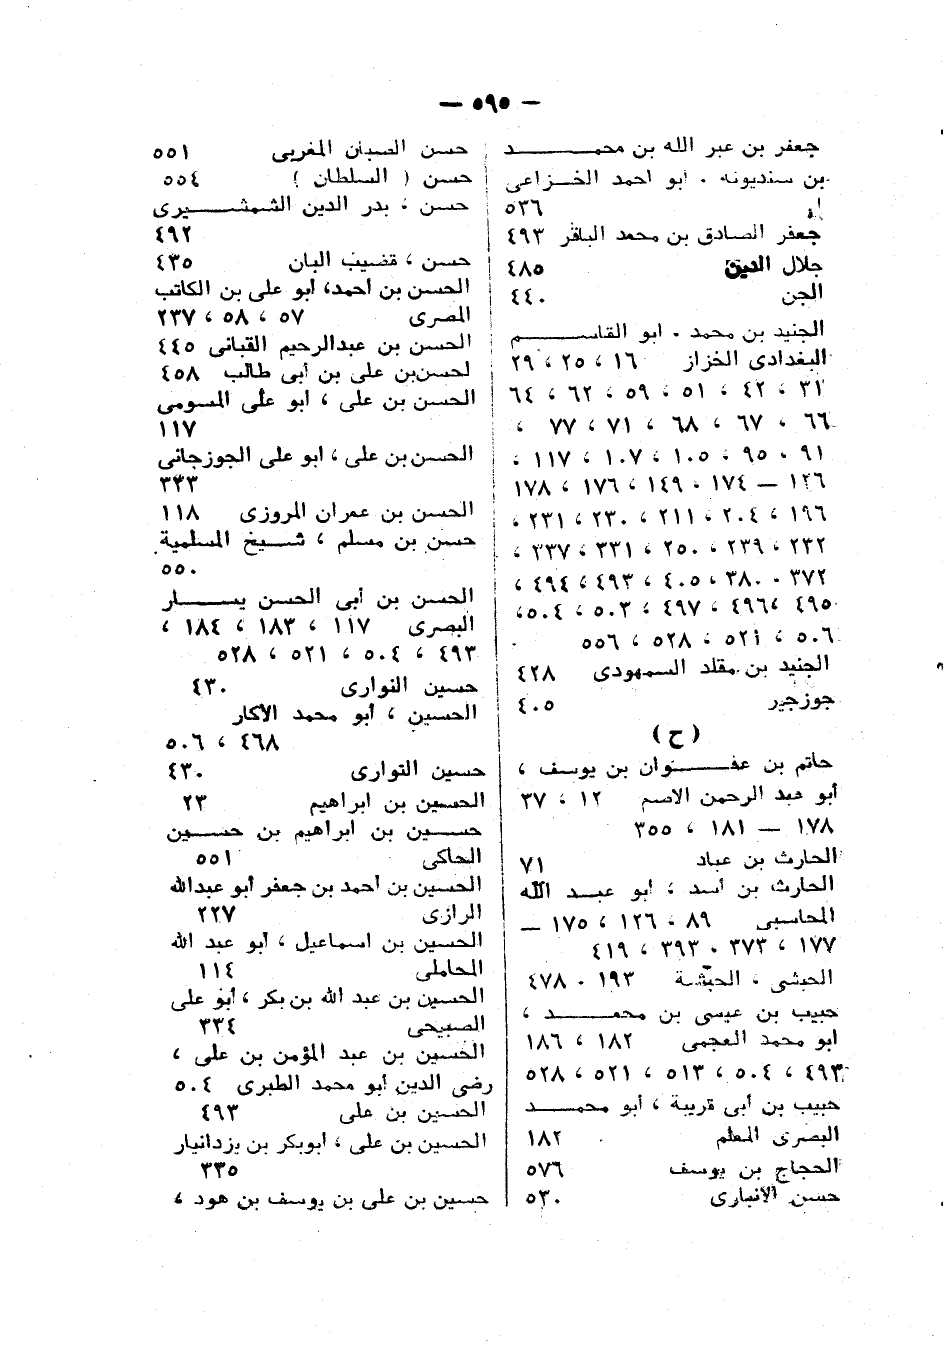 — ٥٩٥ —
جعفر بن عبر الله بن محمد
بن سنديونه . ابو احمد الخزاعى
٥٣٦
جعفر الصادق بن محمد الباقر ٤٩٣
جلال الدين ٤٨٥
الجن ٤٤٠
الجنيد بن محمد . ابو القاسم
البغدادى الخزاز ١٦ ، ٢٥ ، ٢٩
٣١ ، ٤٢ ، ٥١ ، ٥٩ ، ٦٢ ، ٦٤
٦٦ ، ٦٧ ، ٦٨ ، ٧١ ، ٧٧ ،
٩١ ، ٩٥ ، ١٠٥ ، ١٠٧ ، ١١٧ ،
١٢٦ — ١٧٤ ، ١٤٩ ، ١٧٦ ، ١٧٨
١٩٦ ، ٢٠٤ ، ٢١١ ، ٢٣٠ ، ٢٣١ ،
٢٣٢ ، ٢٣٩ ، ٢٥٠ ، ٣٣١ ، ٣٣٧ ،
٣٧٢ ، ٣٨٠ ، ٤٠٥ ، ٤٩٣ ، ٤٩٤ ،
٤٩٥ ، ٤٩٦ ، ٤٩٧ ، ٥٠٣ ، ٥٠٤ ،
٥٠٦ ، ٥٢١ ، ٥٢٨ ، ٥٥٦
الجنيد بن مقلد السمهودى ٤٢٨
جوزجير ٤٠٥
( ح )
حاتم بن عفوان بن يوسف ،
أبو عبد الرحمن الاصم ١٢ ، ٣٧
١٧٨ — ١٨١ ، ٣٥٥
الحارث بن عباد ٧١
الحارث بن أسد ، أبو عبد الله
المحاسبى ٨٩ ، ١٢٦ ، ١٧٥ —
١٧٧ ، ٣٧٣ ، ٣٩٣ ، ٤١٩
الحبشى ، الحبشة ١٩٣ ، ٤٧٨
حبيب بن عيسى بن محمد ،
ابو محمد العجمى ١٨٢ ، ١٨٦
٤٩٣ ، ٥٠٤ ، ٥١٣ ، ٥٢١ ، ٥٢٨
حبيب بن أبى قريبة ، أبو محمد
البصرى المعلم ١٨٢
الحجاج بن يوسف ٥٧٦
حسن الانبارى ٥٣٠
حسن الصبان المغربى ٥٥١
حسن ( السلطان ) ٥٥٤
حسن ، بدر الدين الشمشيرى
٤٩٢
حسن ، قضيب البان ٤٣٥
الحسن بن أحمد، أبو على بن الكاتب
المصرى ٥٧ ، ٥٨ ، ٢٣٧
الحسن بن عبدالرحيم القبانى ٤٤٥
لحسن بن على بن أبى طالب ٤٥٨
الحسن بن على ، ابو على المسومى
١١٧
الحسن بن على ، ابو على الجوزجانى
٣٣٣
الحسن بن عمران المروزى ١١٨
حسن بن مسلم ، شيخ المسلمية
٥٥٠
الحسن بن أبى الحسن يسار
البصرى ١١٧ ، ١٨٣ ، ١٨٤ ،
٤٩٣ ، ٥٠٤ ، ٥٢١ ، ٥٢٨
حسين النوارى ٤٣٠
الحسين ، أبو محمد الاكار
٤٦٨ ، ٥٠٦
حسين التوارى ٤٣٠
الحسين بن ابراهيم ٢٣
حسين بن ابراهيم بن حسين
الحاكى ٥٥١
الحسين بن أحمد بن جعفر أبو عبدالله
الرازى ٢٢٧
الحسين بن اسماعيل ، أبو عبد الله
المحاملى ١١٤
الحسين بن عبد الله بن بكر ، أبو على
الصبيحى ٣٣٤
الحسين بن عبد المؤمن بن على ،
رضى الدين أبو محمد الطبرى ٥٠٤
الحسين بن على ٤٩٣
الحسين بن على ، أبوبكر بن يزدانيار
٣٣٥
حسين بن على بن يوسف بن هود ،